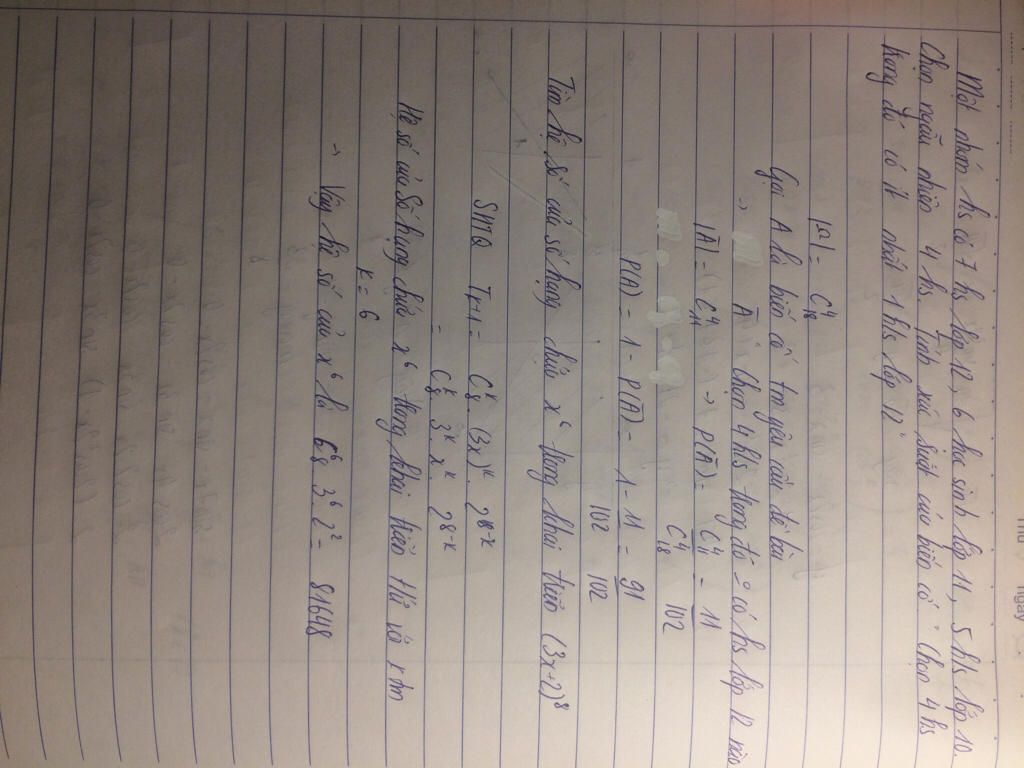 Một nhóm hs có 7 hs lớp 12, 6 học sinh lớp 11, 5 hs lớp 10.
Chọn ngẫu nhiên 4 hs. Tính xác suất của biến cố "Chọn 4 hs
trong đó có ít nhất 1 hs lớp 12"
|Ω| = C⁴₁₈
Gọi A là biến cố tm yêu cầu đề bài
→ Ā "chọn 4 hs trong đó ko có hs lớp 12 nào
|Ā| = C⁴₁₁ → P(Ā) = C⁴₁₁ / C⁴₁₈ = 11/102
P(A) = 1 - P(Ā) = 1 - 11/102 = 91/102
Tìm hệ số của số hạng chứa x⁶ trong khai triển (3x+2)⁸
SHTQ Tₖ₊₁ = Cᵏ₈ . (3x)ᵏ . 2⁸⁻ᵏ
= Cᵏ₈ . 3ᵏ . xᵏ . 2⁸⁻ᵏ
Hệ số của số hạng chứa x⁶ trong khai triển thì với k tm
k = 6
→ Vậy hệ số của x⁶ là C⁶₈ . 3⁶ . 2² = 81648